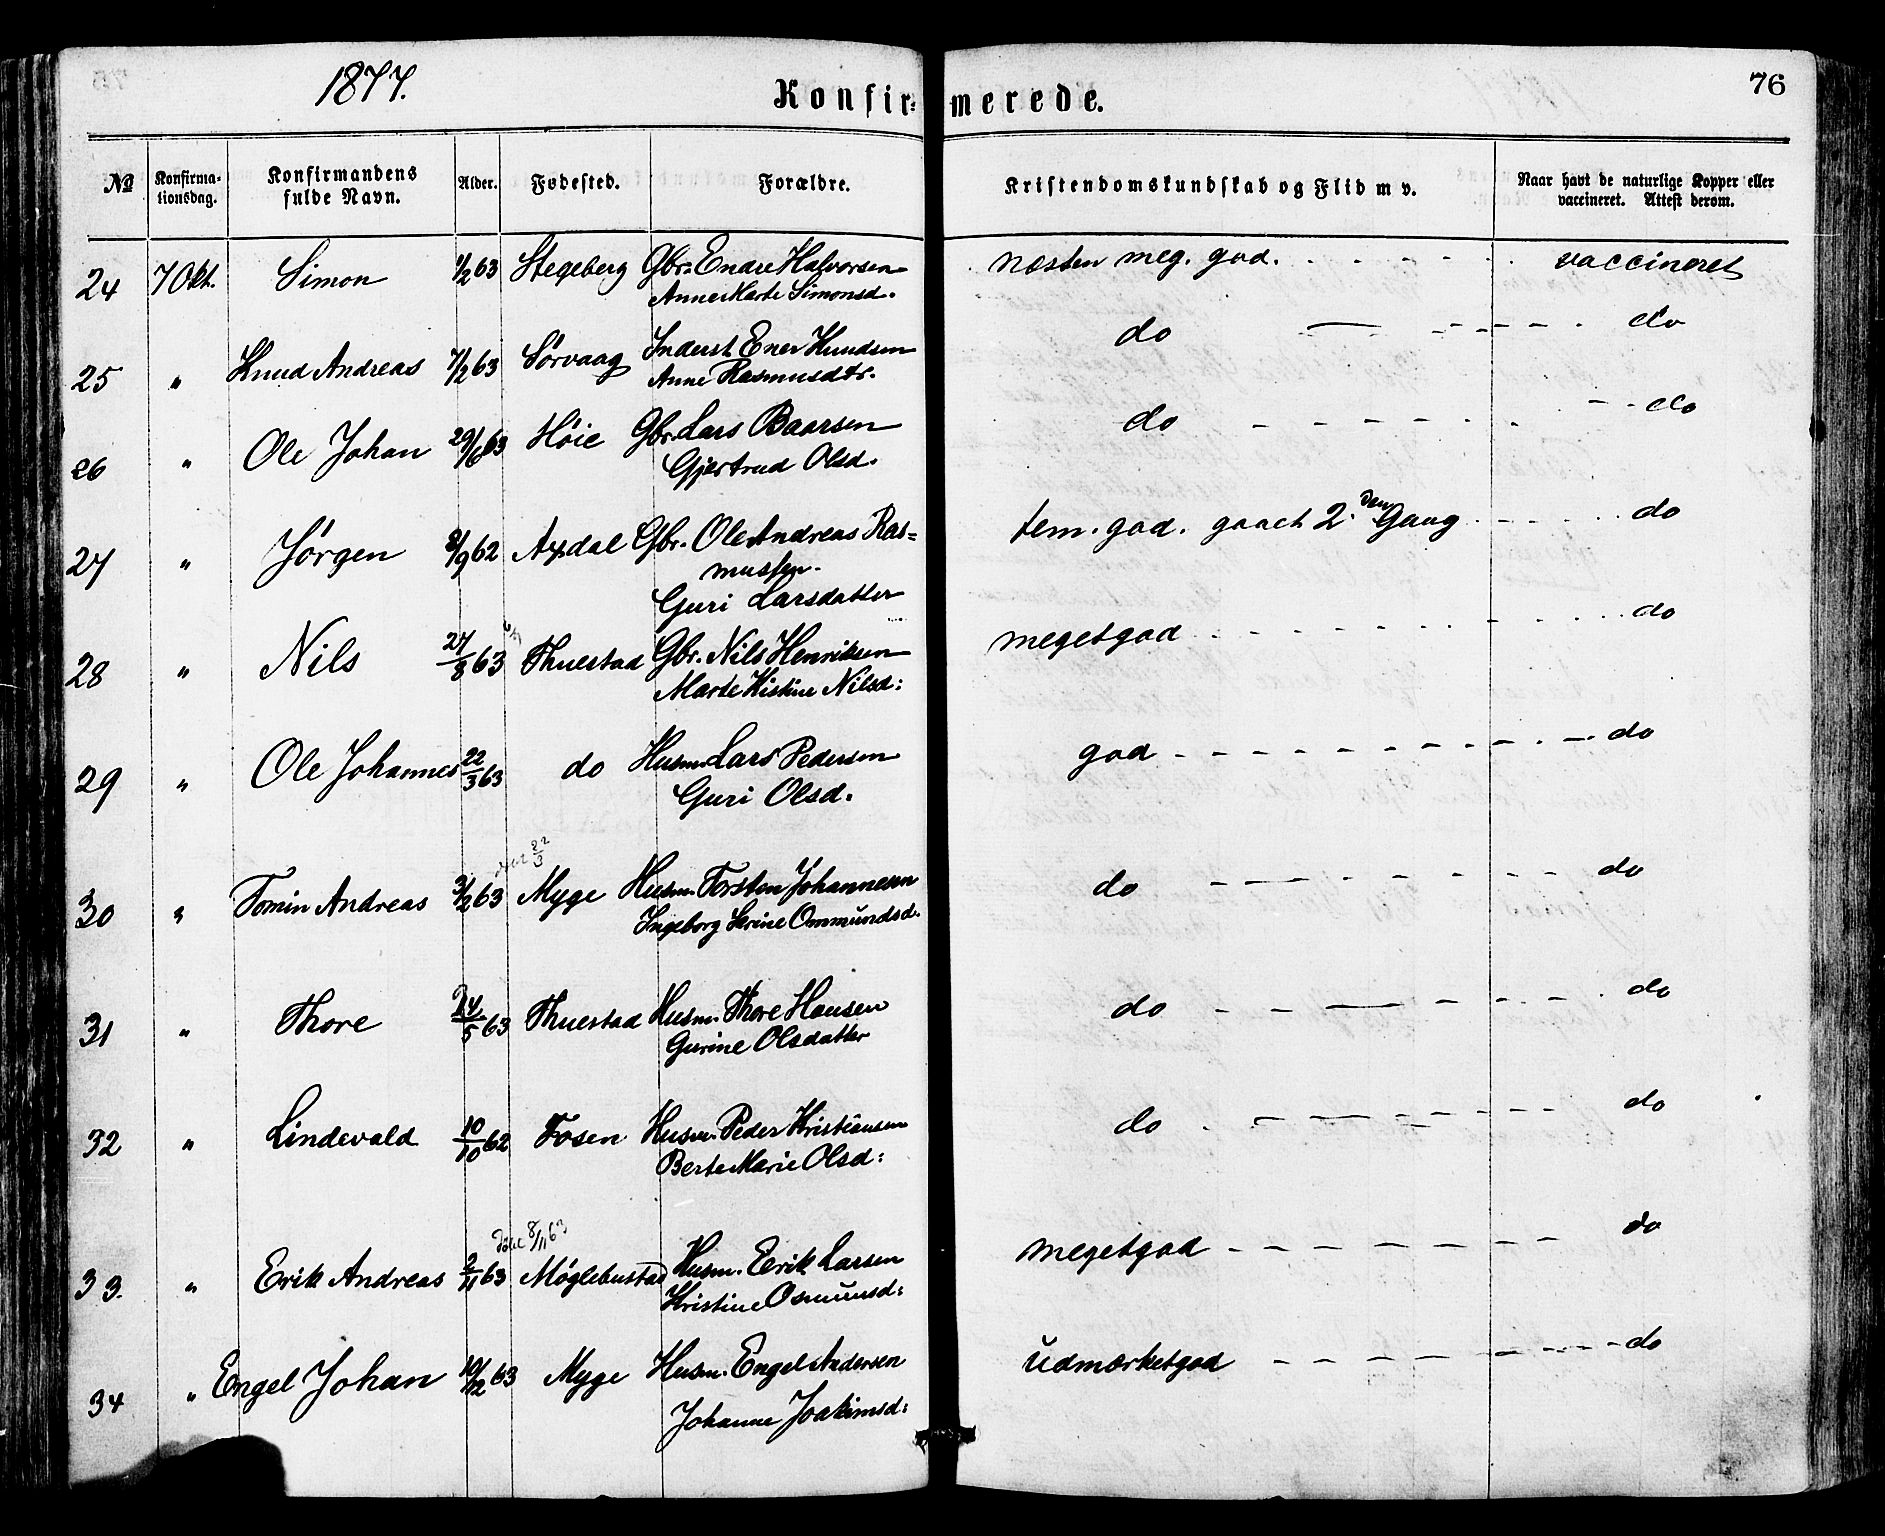 1877.
Konfirmerede.
76
No
Konfirma-
tionsdag.
Konfirmandens
fulde Navn.
Alder.
Fødested.
Forældre.
Kristendomskundskab og Flid m v.
Naar havt de naturlige Kopper eller
vaccineret. Attest derom.
24 7 Okt. Simon 1/2 63 Stegeberg Gbr. Endre Halvorsen næsten meg. god. vaccineret
Anne Marte Simonsd.
25 " Knud Andreas 7/2 63 Sørvaag Inderst Ener Knudsen do do
Anne Rasmusdtr.
26 " Ole Johan 29/6 63 Høie Gbr. Lars Baarsen do do
Gjertrud Olsd.
27 " Jørgen 8/9 62 Axdal Gbr. Ole Andreas Ras- tem. god. gaaet 2den Gang do
mussen.
Guri Larsdatter
28 " Nils 27/8 63 Thuestad Gbr. Nils Henriksen megetgod do
Marte Kistine Nilsd:
29 " Ole Johannes 22/3 63 do Husm. Lars Pedersen god do
Guri Olsd.
22/3
30 " Tomin Andreas 3/2 63 Myge Husm. Torsten Johannesen do do
Ingeborg Serine Ommundsd.
31 " Thore 24/5 63 Thuestad Husm. Thore Hansen do do
Gurine Olsdatter
32 " Lindevald 10/10 62 Fosen Husm. Peder Kristiansen do do
Berte Marie Olsd:
døbt 8/11 63
33. " Erik Andreas 2/11 63 Møglebustad Husm. Erik Larsen megetgod do
Kristine Osmunsd:
34 " Engel Johan 10/12 63 Myge Husm. Engel Andersen udmærketgod do
Johanne Joakimsd: